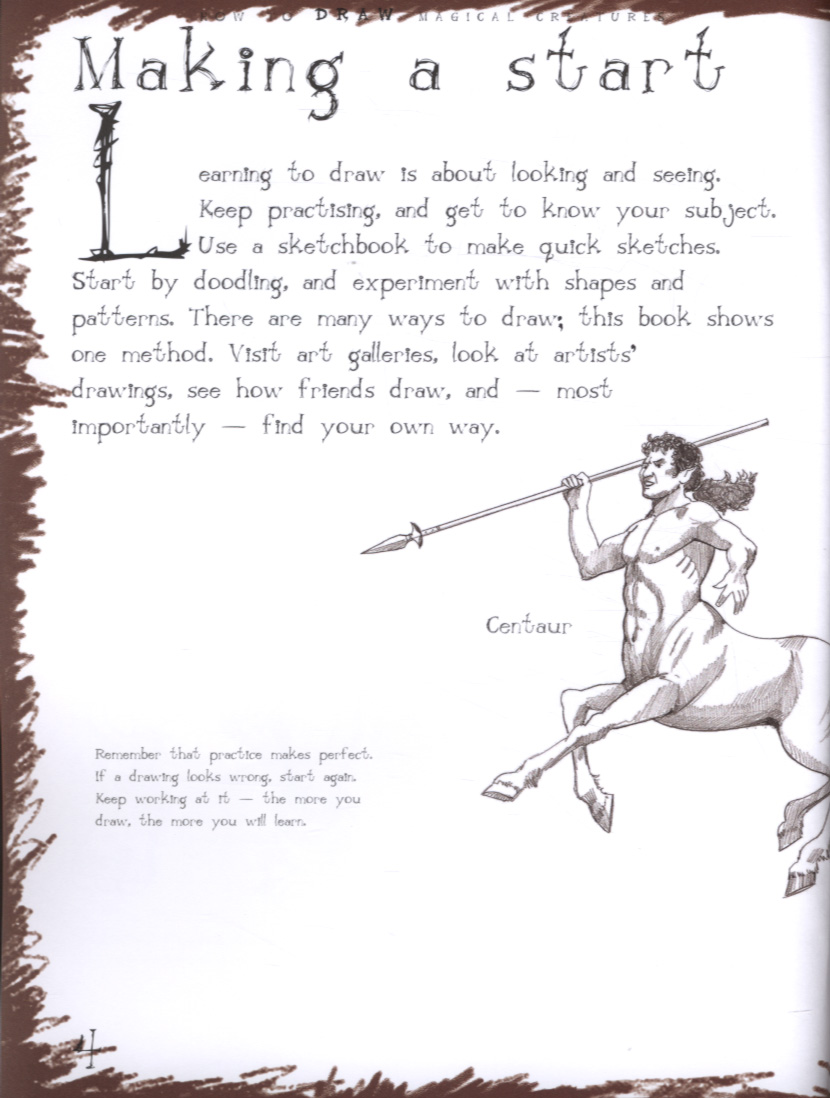 HOW TO DRAW MAGICAL CREATURES
Making a start
Learning to draw is about looking and seeing.
Keep practising, and get to know your subject.
Use a sketchbook to make quick sketches.
Start by doodling, and experiment with shapes and
patterns. There are many ways to draw; this book shows
one method. Visit art galleries, look at artists'
drawings, see how friends draw, and — most
importantly — find your own way.
Centaur
Remember that practice makes perfect.
If a drawing looks wrong, start again.
Keep working at it — the more you
draw, the more you will learn.
4